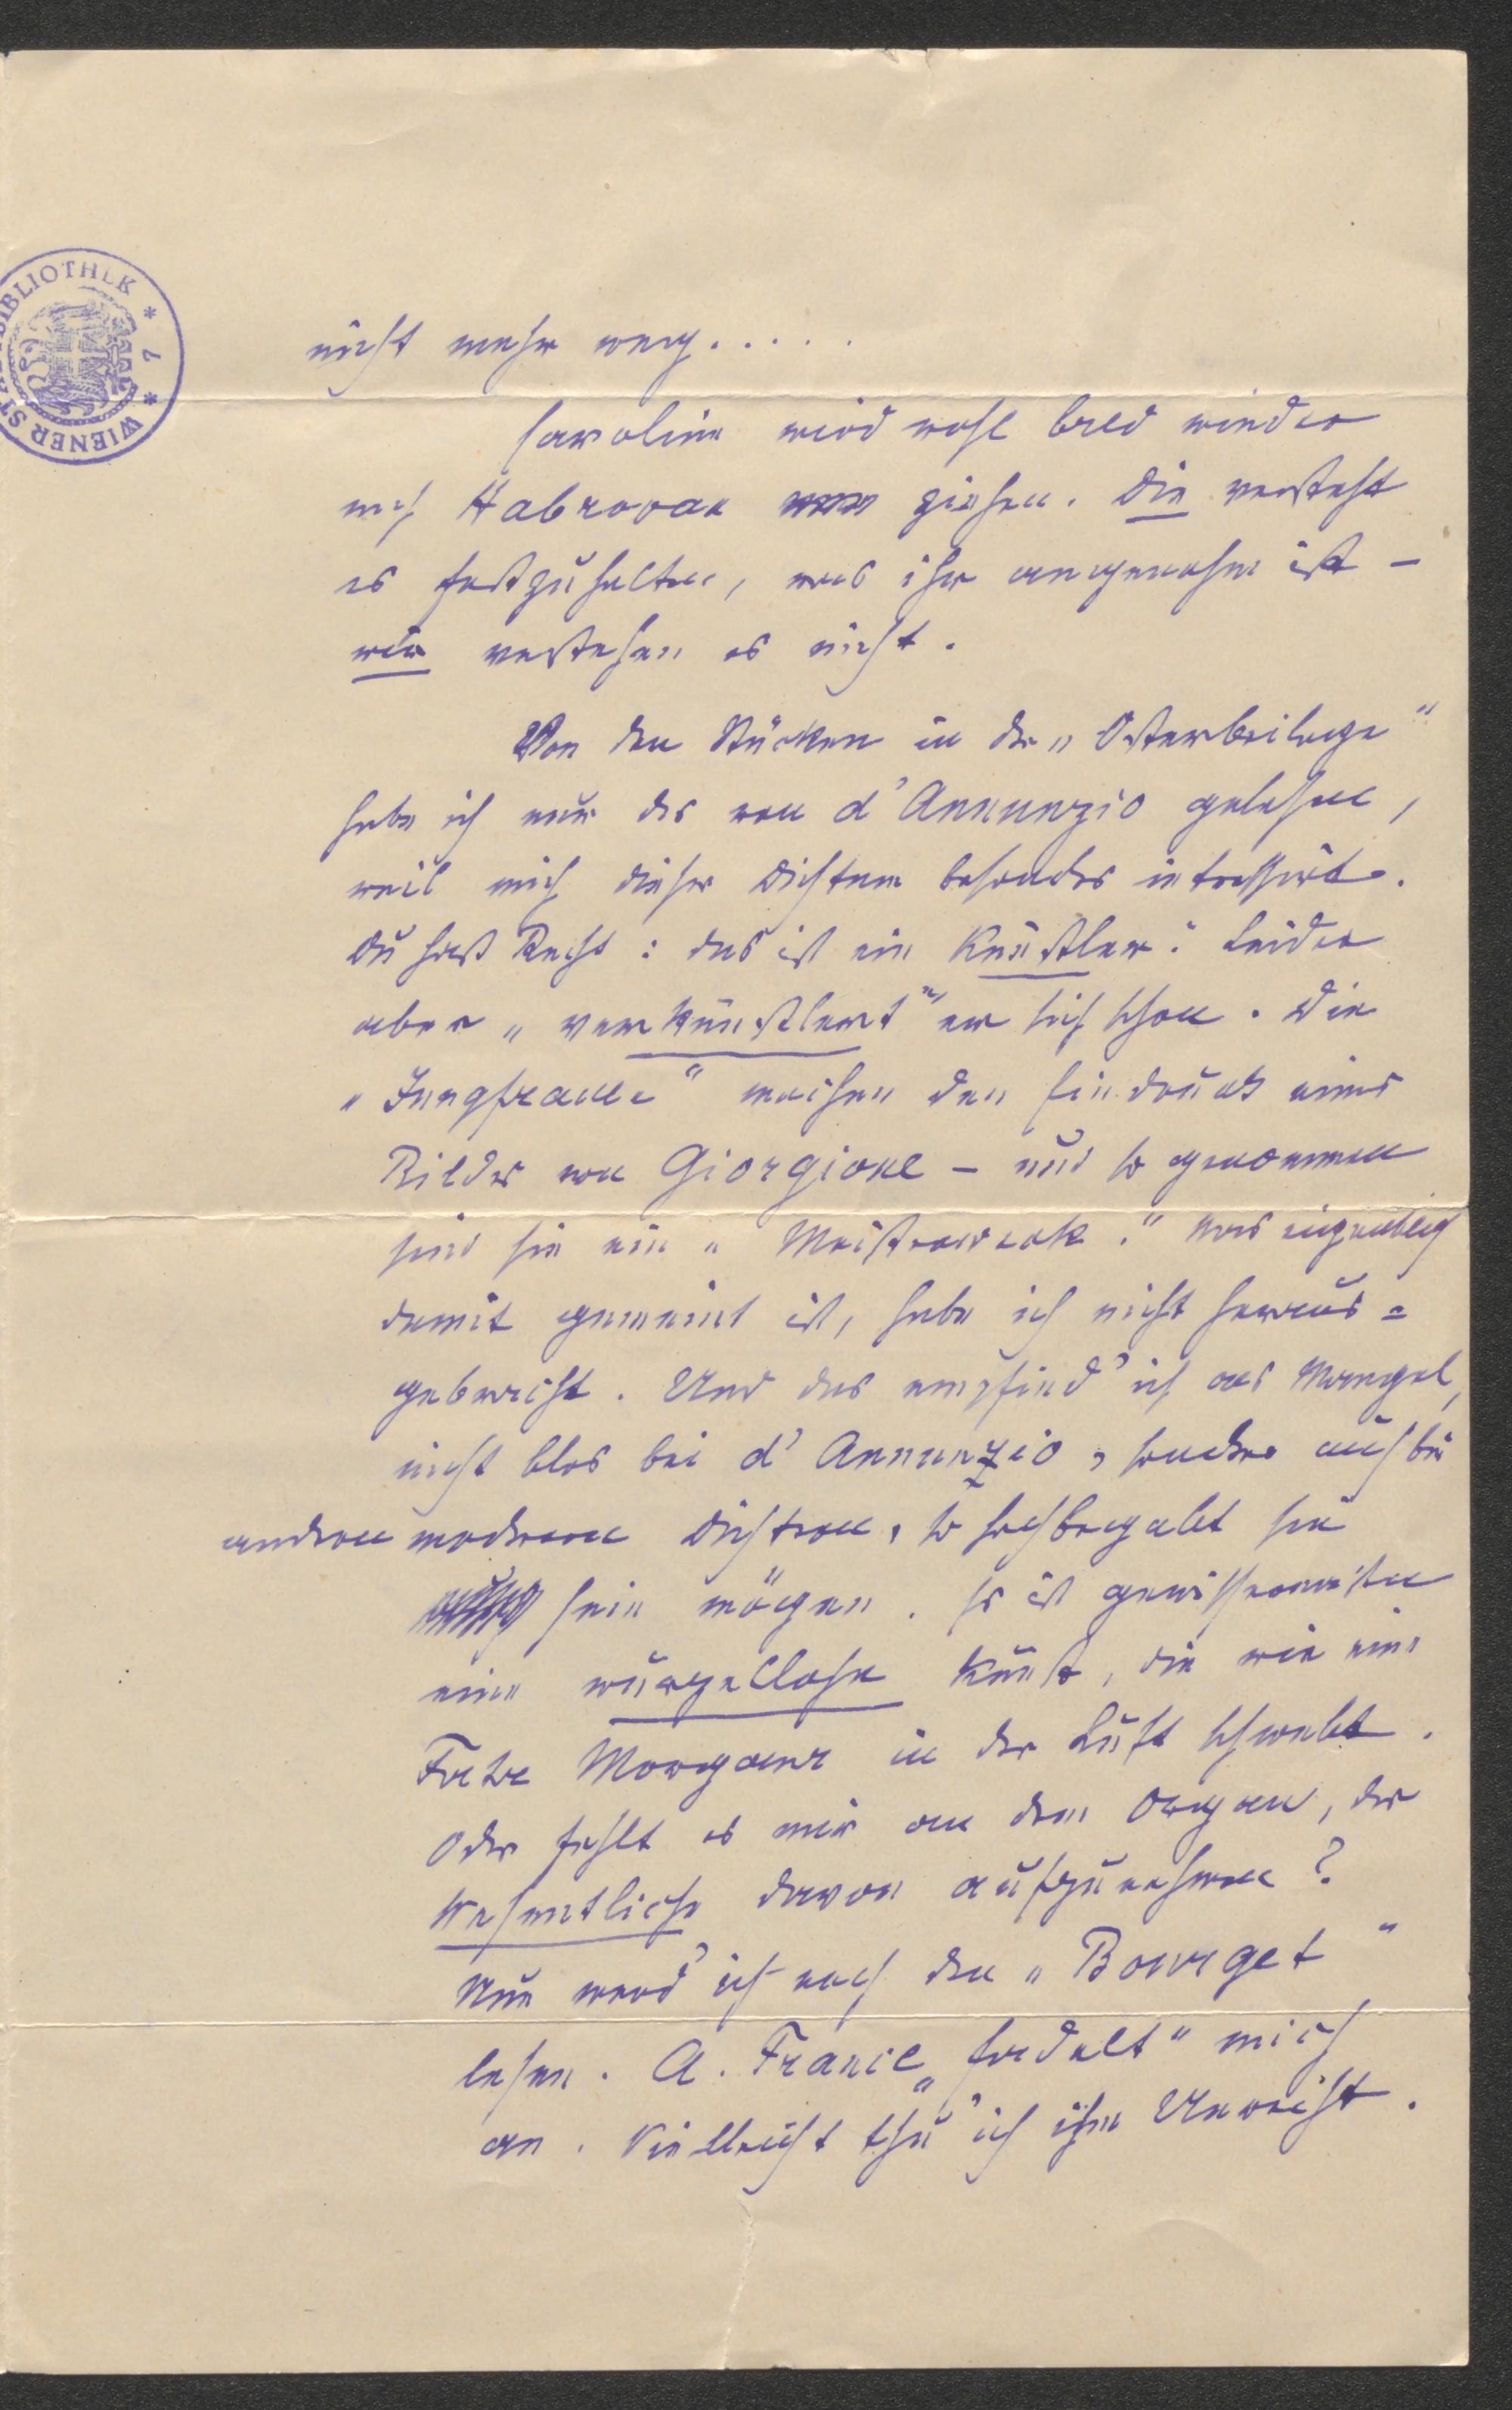 BIBLIOTHEK * 7 * WIENER ST
nicht mehr weg.....
Caroline wird wohl bald wieder
nach Habrovan ziehen. Die versteht
es festzuhalten, was ihr angenehm ist –
wir verstehen es nicht.
Von den Stücken in der „Osterbeilage“
habe ich nur das von d'Annunzio gelesen,
weil mich dieser Dichter besonders intressirt.
Du hast Recht: das ist ein Künstler. Leider
aber „verkünstlert“ er sich schon. Die
„Jungfrauen“ machen den Eindruck eines
Bildes von Giorgione – und so genommen
sind sie ein „Meisterwerk.“ Was eigentlich
damit gemeint ist, habe ich nicht heraus=
gebracht. Und das empfind' ich als Mangel,
nicht blos bei d'Annunzio, sondern auch bei
anderen modernen Dichtern, so hochbegabt sie
sein mögen. Es ist gewissermaßen
eine wurzellose Kunst, die wie eine
Fata Morgana in der Luft schwebt.
Oder fehlt es mir an dem Organ, das
Wesentliche davon aufzunehmen?
Nun werd' ich noch den „Bourget“
lesen. A. France „fadelt“ mich
an. Vielleicht thu' ich ihm Unrecht.